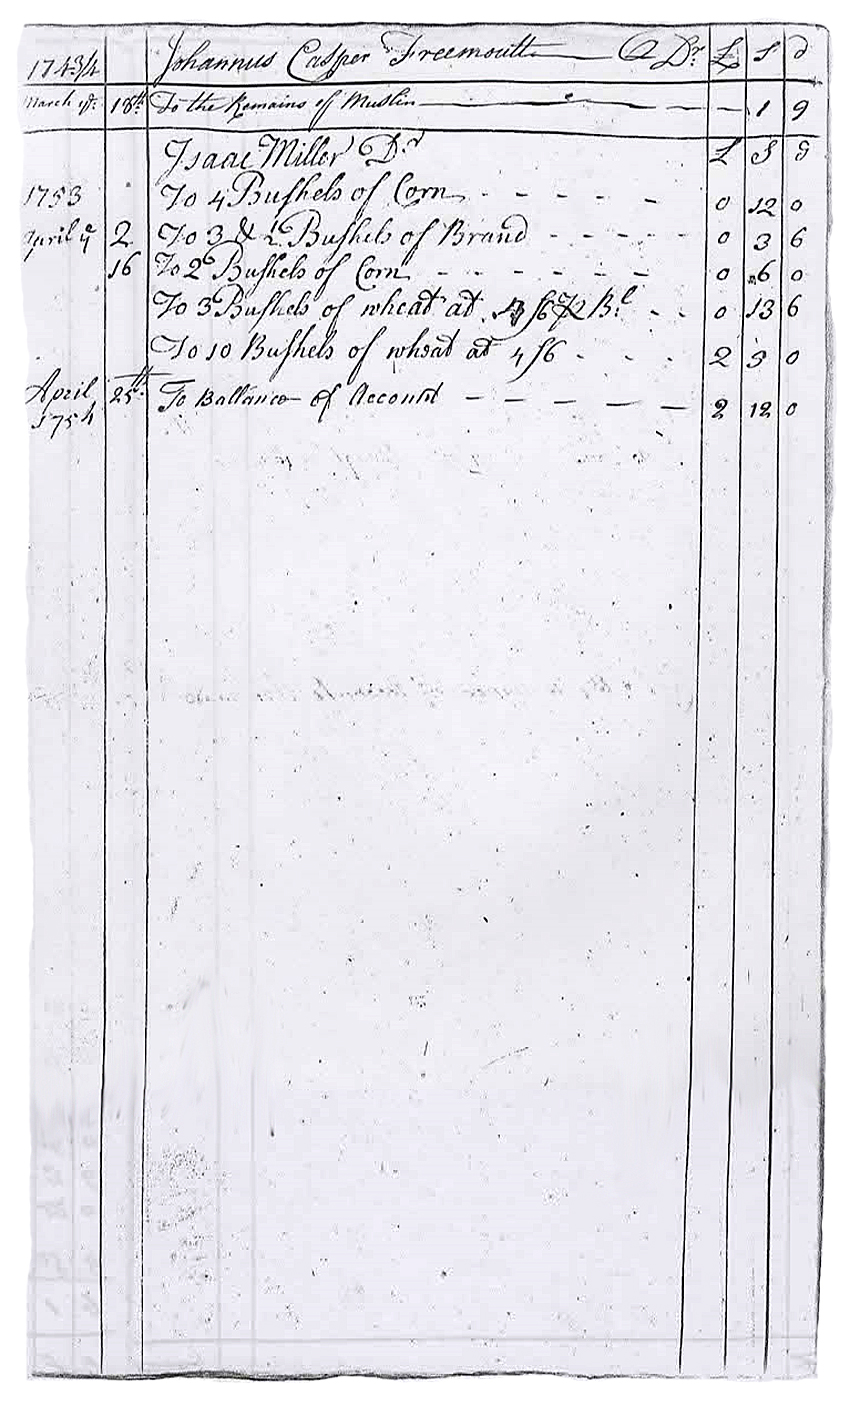 1743/4 Johannus Casper Freemoutt Dr £ S d
March ye 18th To the Remains of Muslin 1 9
Isaac Miller Dr £ S d
1753 To 4 Bushels of Corn 0 12 0
April ye 2 To 3 & ½ Bushels of Brand 0 3 6
16 To 2 Bushels of Corn 0 6 0
To 3 Bushels of wheat at 0 13 6
To 10 Bushels of wheat at 4 S 6 2 5 0
April 25th To Ballance of Account 2 12 0
1754